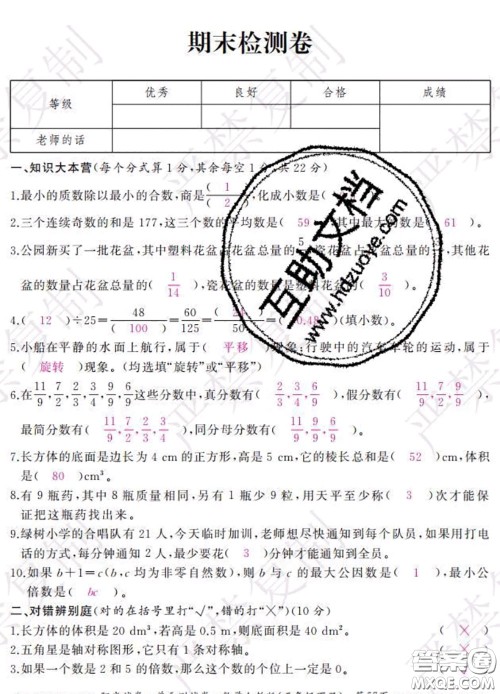 期末检测卷
等级 优秀 良好 合格 成绩
老师的话
一、知识大本营(每个分式算1分,其余每空1分,共22分)
1.最小的质数除以最小的合数,商是( 1/2 ),化成小数是(
2.三个连续奇数的和是177,这三个数的平均数是( 59 ),其中最大的数是( 61 )。
3.公园新买了一批花盆,其中塑料花盆占花盆总量的 ,瓷花盆占花盆总量的 ,其他花
盆的数量占花盆总量的( 1/14 ),瓷花盆的数量是塑料花盆的( 3/10 )。
4.( 12 )÷25=48/(100)=60/125=( )/50=(0.48)(填小数)。
5.小船在平静的水面上航行,属于( 平移 )现象;行驶中的汽车车轮的运动,属于
( 旋转 )现象。(均选填“旋转”或“平移”)
6.在11/9,7/2,2/3,7/4,9/9,6/9这些分数中,真分数有( 2/3,6/9 ),假分数有( 11/9,7/2,7/4,9/9 ),
最简分数有( 11/9,7/2,2/3,7/4 ),同分母分数有( 11/9,9/9,6/9 )。
7.长方体的底面是边长为4 cm的正方形,高是5 cm,它的棱长总和是( 52 )cm,体积
是( 80 )cm³。
8.有9瓶药,其中8瓶质量相同,另有1瓶少9粒,用天平至少称( 3 )次才能保
证把这瓶药找出来。
9.绿树小学的合唱队有21人,今天临时加训,老师想尽快通知到每个队员,如果用打电
话的方式,每分钟通知2人,最少要花( 3 )分钟才能通知到全员。
10.如果b+1=c(b,c均为非零自然数),则b与c的最大公因数是( 1 ),最小公
倍数是( bc )。
二、对错辨别庭(对的在括号里打“√”,错的打“×”)(10分)
1.长方体的体积是20 dm³,若高是0.5 m,则底面积是40 dm²。 ( × )
2.五角星是轴对称图形,它只有1条对称轴。 ( × )
3.如果一个数是2和5的倍数,那么这个数的个位上一定是0。
严禁复制
互助文档
www.hdzuoye.com
答案圈
MXQE.COM